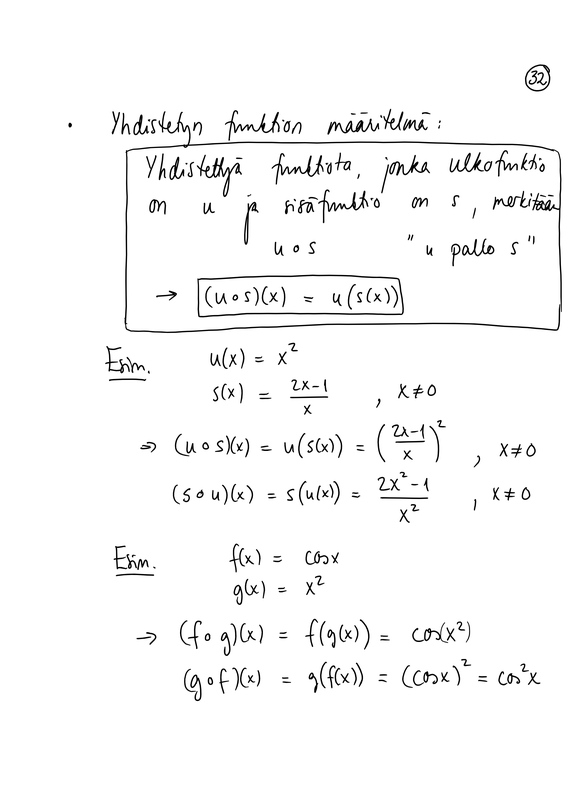 32
• Yhdistetyn funktion määritelmä:
Yhdistettyä funktiota, jonka ulkofunktio
on u ja sisäfunktio on s, merkitään
u ∘ s "u pallo s"
→ (u ∘ s)(x) = u(s(x))
Esim. u(x) = x²
s(x) = (2x-1)/x , x ≠ 0
⇒ (u ∘ s)(x) = u(s(x)) = ((2x-1)/x)² , x ≠ 0
(s ∘ u)(x) = s(u(x)) = (2x²-1)/x² , x ≠ 0
Esim. f(x) = cosx
g(x) = x²
→ (f ∘ g)(x) = f(g(x)) = cos(x²)
(g ∘ f)(x) = g(f(x)) = (cosx)² = cos²x